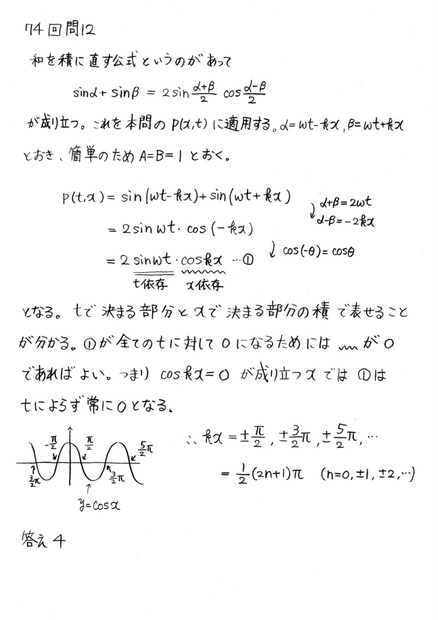 74回問12
和を積に直す公式というのがあって
sinα + sinβ = 2 sin (α+β)/2 cos (α-β)/2
が成り立つ。これを本問の P(x,t) に適用する。α=wt-kx, β=wt+kx
とおき、簡単のため A=B=1 とおく。
P(t,x) = sin(wt-kx)+sin(wt+kx)
α+β=2wt
α-β=-2kx
= 2 sin wt · cos (-kx)
cos(-θ) = cosθ
= 2 sin wt · cos kx … ①
t依存 x依存
となる。tで決まる部分とxで決まる部分の積で表せること
が分かる。①が全てのtに対して0になるためには 〰 が0
であればよい。つまり cos kx=0 が成り立つxでは①は
tによらず常に0となる。
-π/2 π/2 5/2π
-3/2π 3/2π
y=cosx
∴ kx = ±π/2, ±3/2π, ±5/2π, …
= 1/2(2n+1)π (n=0, ±1, ±2, …)
答え 4